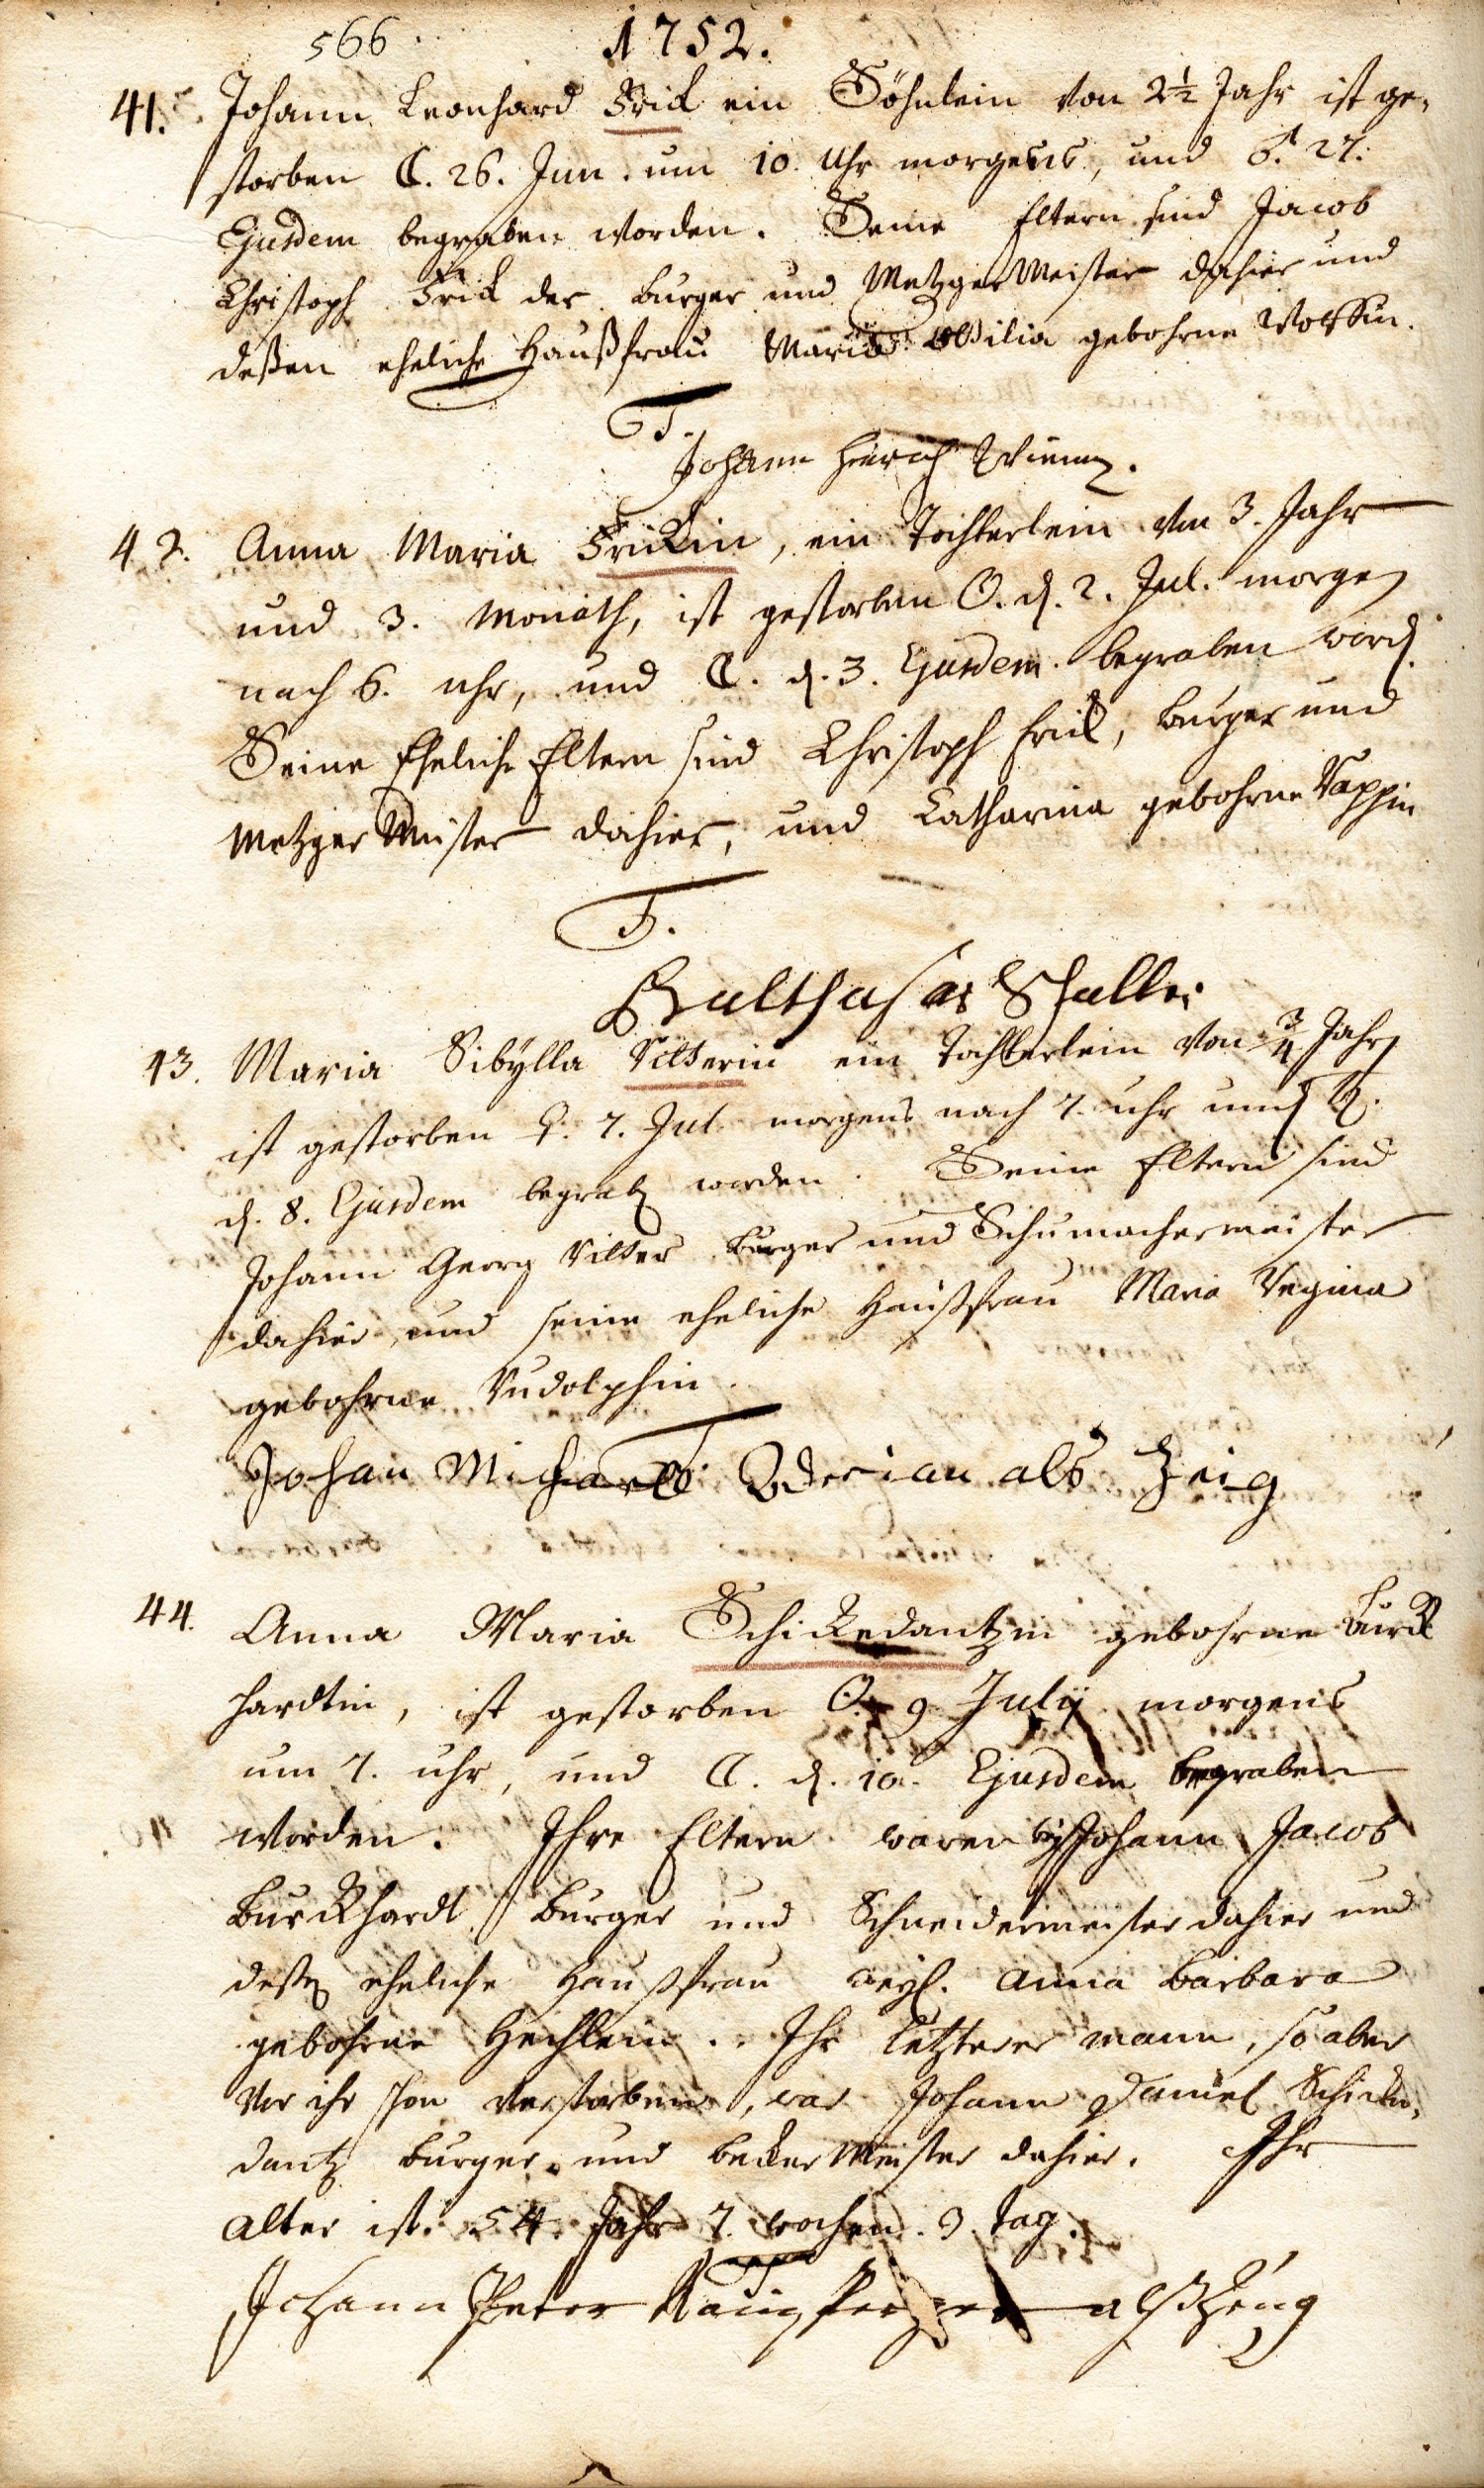 566
1752.
41. Johann Leonhard Frick ein Söhnlein von 2½ Jahr ist ge-
storben ☾. 26. Jun. um 10. Uhr morgens, und ♂. 27.
Ejusdem begraben worden. Seine Eltern sind Jacob
Christoph Frick der burger und Metzger Meister dahier und
deßen eheliche Haußfrau Maria Ottilia gebohrne
T.
Johann Henrich
42. Anna Maria Frickin, ein Töchterlein von 3. Jahr
und 3. Monath, ist gestorben ☉. d. 2. Jul. morgens
nach 6. uhr, und ☾. d. 3. Ejusdem begraben word.
Seine Eheliche Eltern sind Christoph Frick, burger und
Metzger Meister dahier, und Catharina gebohrne Rappin
T.
Balthasar
43. Maria Sibylla Vilterin ein Töchterlein von ¾ Jahr
ist gestorben ♀. 7. Jul. morgens nach 7. uhr und ♄.
d. 8. Ejusdem begrab. worden. Seine Eltern sind
Johann Georg Vilter burger und Schumachermeister
dahier, und seine eheliche Haußfrau Maria Regina
gebohrne Rudolphin.
T.
Johan Michael als Zeig
44. Anna Maria Schickedantzin gebohrne Burck
hardtin, ist gestorben ☉. 9 Julij morgens
um 7. uhr, und ☾. d. 10. Ejusdem begraben
worden. Ihre Eltern waren Johann Jacob
Burckhardt burger und Schneidermeister dahier und
deßen eheliche Haußfrau weyl. Anna Barbara
gebohrne Hechlein. Ihr letzterer mann, so aber
vor ihr schon verstorben, war Johann Daniel Schicke-
dantz burger und becker Meister dahier. Ihr
Alter ist. 54. Jahr 7. wochen. 3. tag.
T.
Johann Peter als Zeug